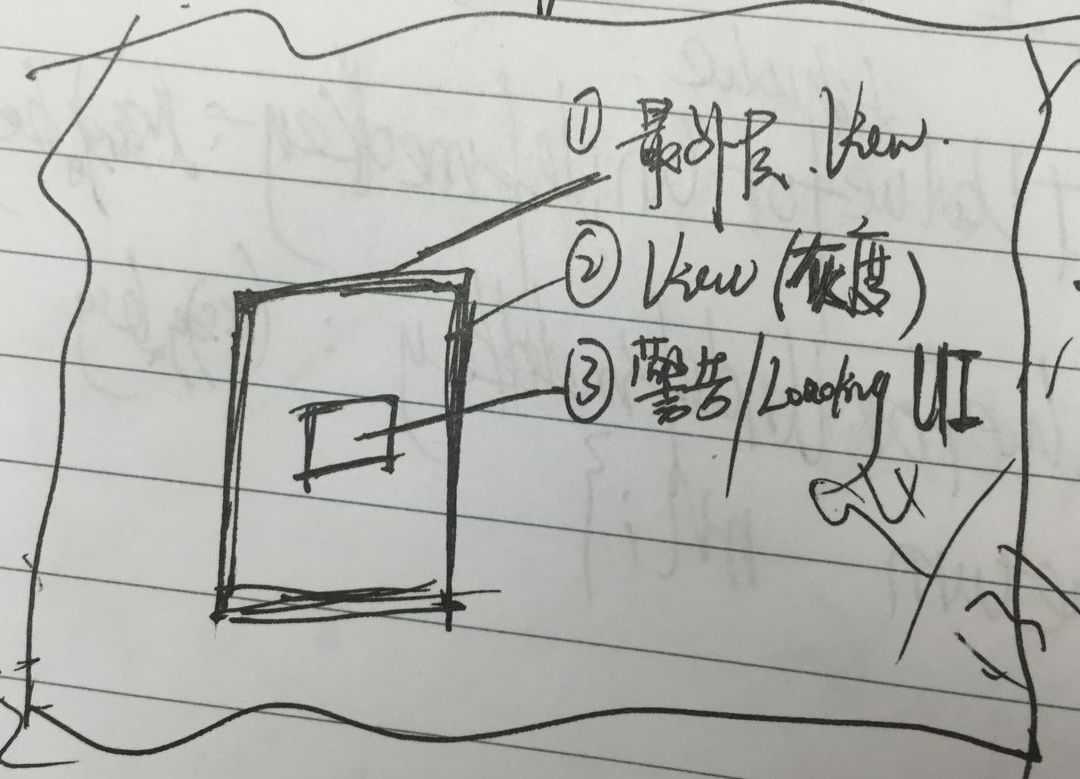 ① 最外层 View.
② View (灰度)
③ 警告/Loading UI